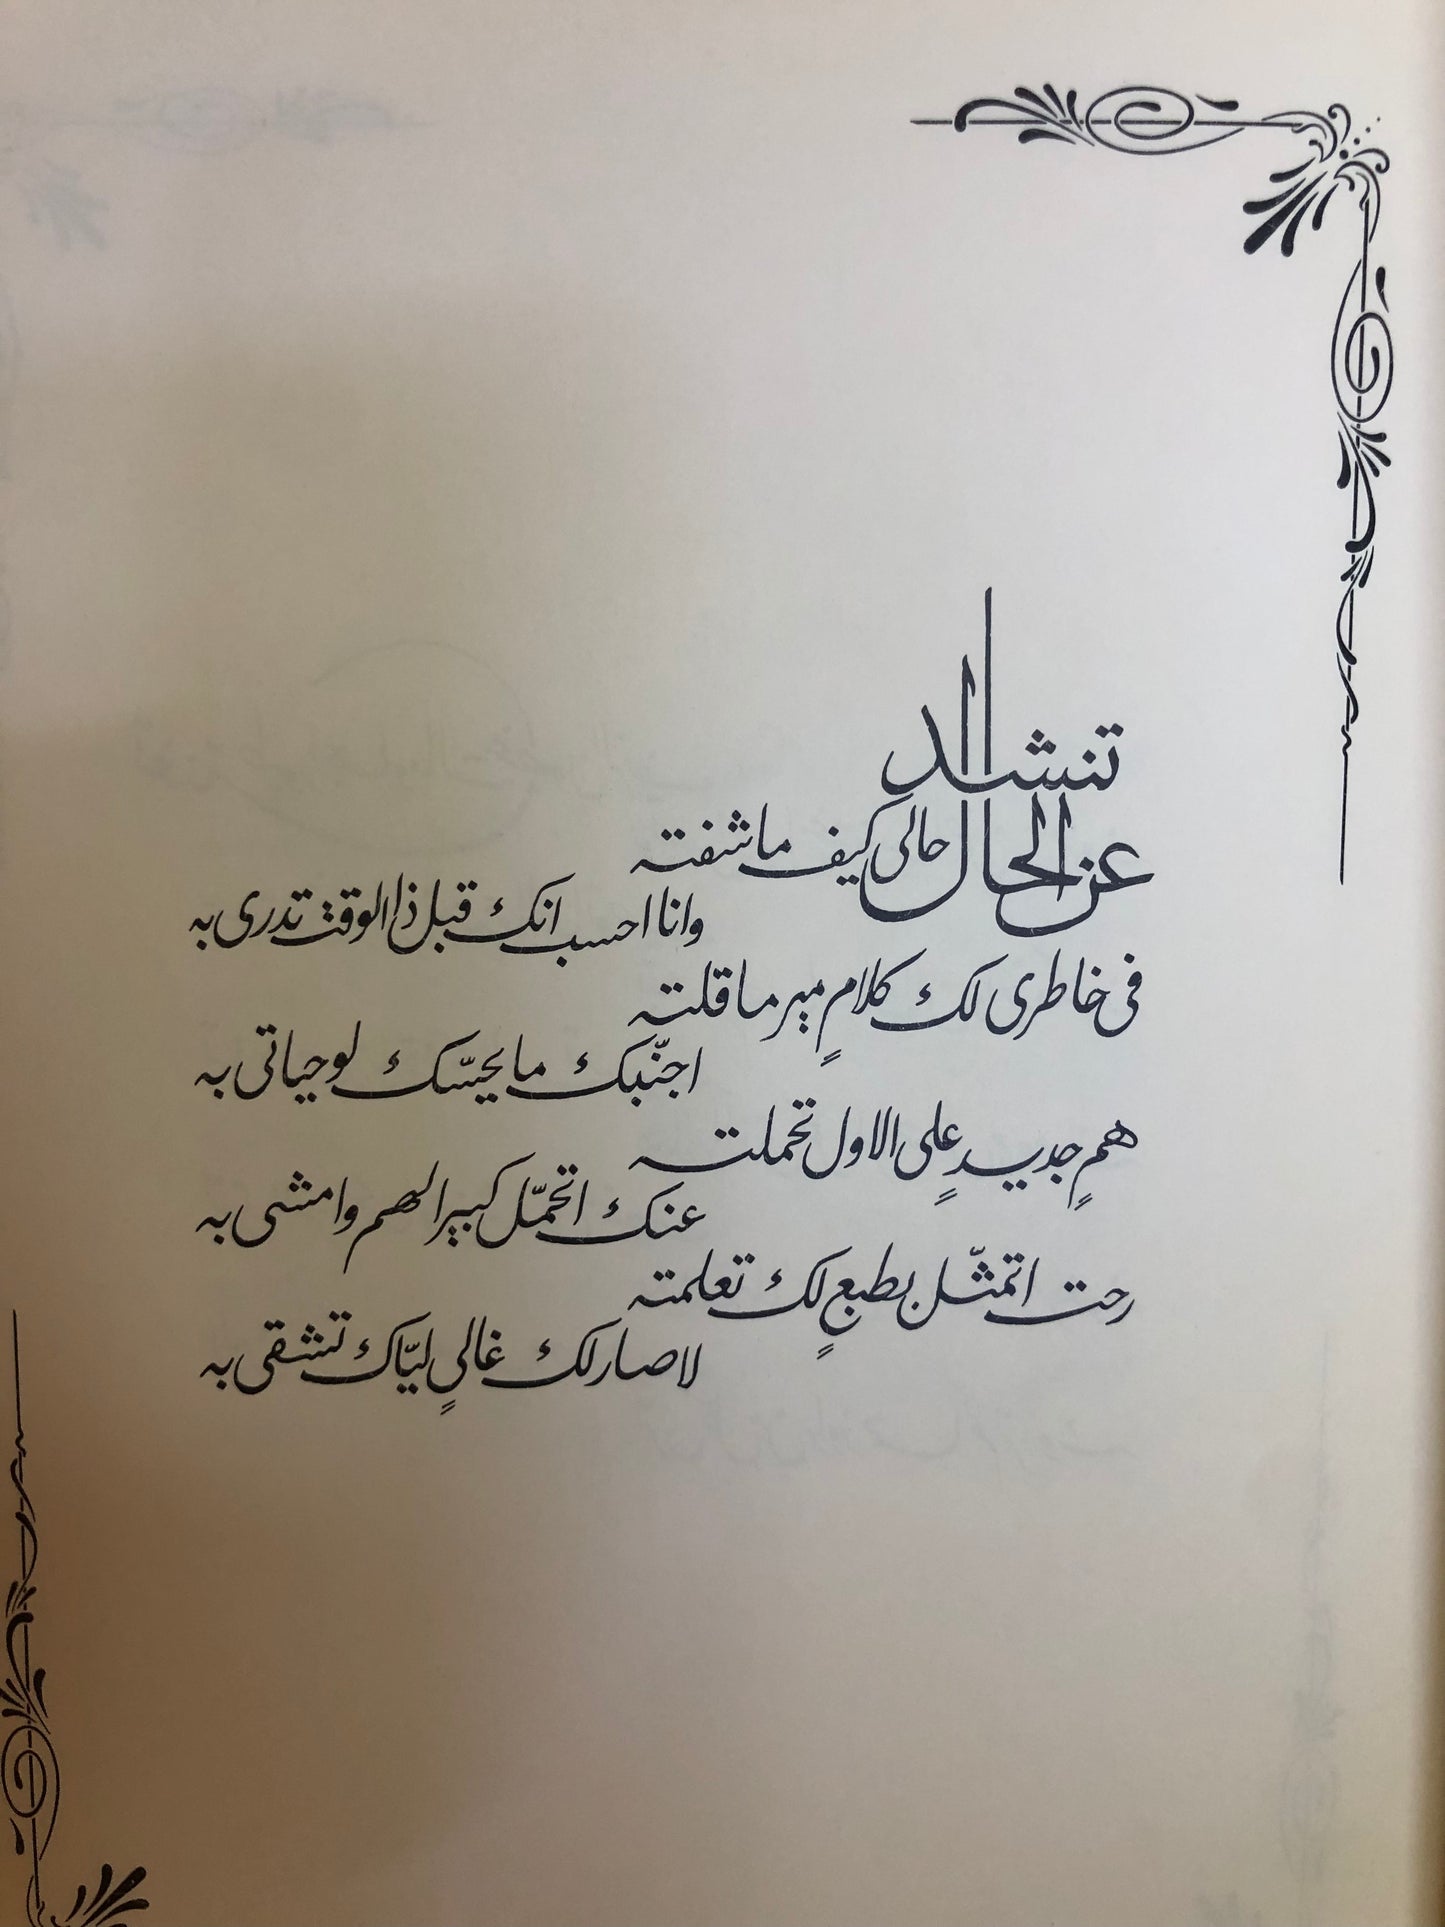 تنشد
عن الحال حالي كيف ما شفته
وانا احسب انك قبل ذا الوقت تدري به
في خاطري لك كلامٍ مير ما قلته
اجنّبك ما يحسّك لو حياتي به
همٍ جديدٍ على الاول تحملته
عنك اتحمّل كبير الهم وامشي به
رحت اتمثّل بطبعٍ لك تعلمته
لا صار لك غاليٍ ليّاك تشقى به